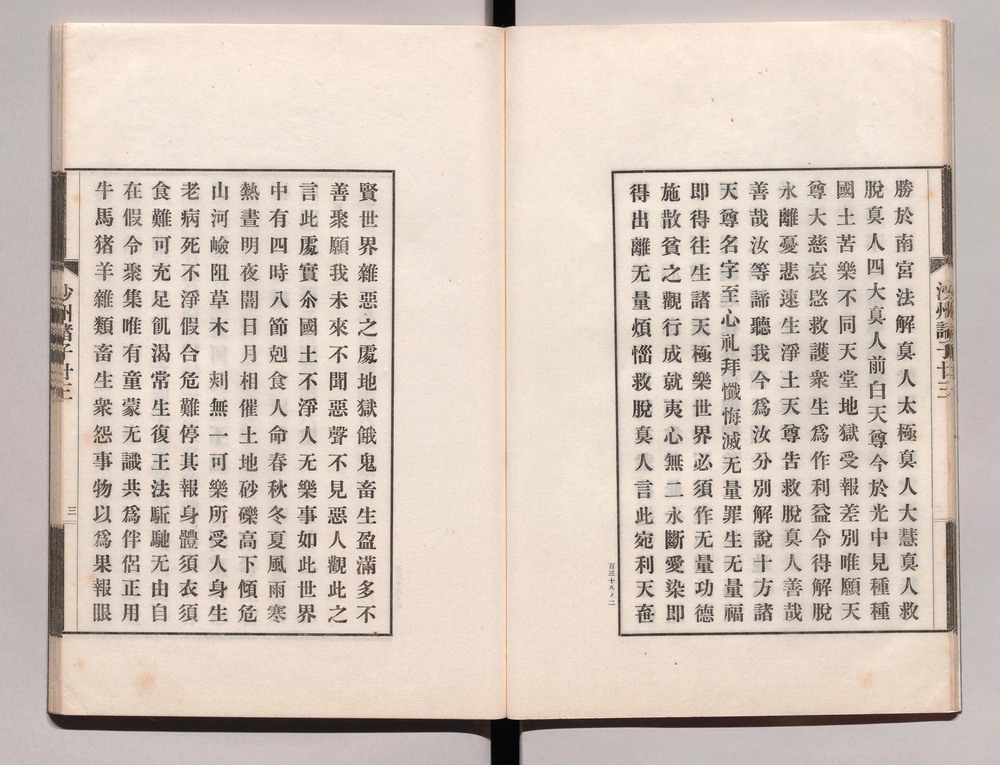 勝於南宮法解真人太極真人大慧真人救
脫真人四大真人前白天尊今於光中見種種
國土苦樂不同天堂地獄受報差別唯願天
尊大慈哀愍救護衆生爲作利益令得解脫
永離憂悲速生淨土天尊告救脫真人善哉
善哉汝等諦聽我今爲汝分別解說十方諸
天尊名字至心礼拜懺悔滅无量罪生无量福
即得往生諸天極樂世界必須作无量功德
施散貧之觀行成就夷心無二永斷愛染即
得出離无量煩惱救脫真人言此宛利天夿
百三十八ノ二
沙州諸子廿三
賢世界雜惡之處地獄餓鬼畜生盈滿多不
善聚願我未來不聞惡聲不見惡人觀此之
言此處實尒國土不淨人无樂事如此世界
中有四時八節剋食人命春秋冬夏風雨寒
熱晝明夜闇日月相催土地砂礫高下傾危
山河嶮阻草木刾無一可樂所受人身生
老病死不淨假合危難停其報身體須衣須
食難可充足飢渴常生復王法駈馳无由自
在假令聚集唯有童蒙无識共爲伴侶正用
牛馬猪羊雜類畜生衆怨事物以爲果報眼
沙州諸子廿三
三